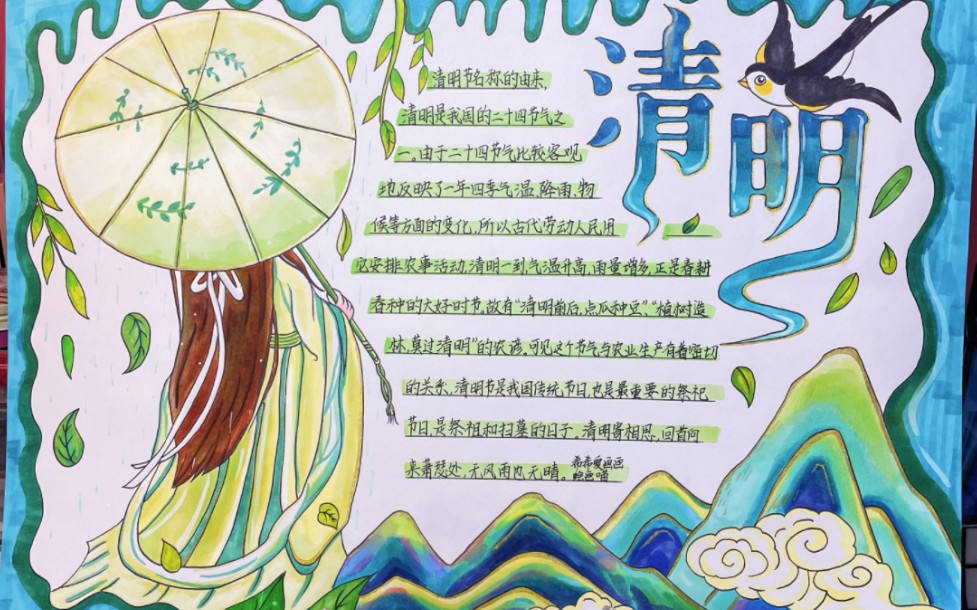 清明
清明节名称的由来,
清明是我国的二十四节气之
一。由于二十四节气比较客观
地反映了一年四季气温、降雨、物
候等方面的变化,所以古代劳动人民用
它安排农事活动,清明一到,气温升高,雨量增多,正是春耕
春种的大好时节,故有“清明前后,点瓜种豆”“植树造
林,莫过清明”的农谚,可见这个节气与农业生产有着密切
的关系,清明节是我国传统节日,也是最重要的祭祀
节日,是祭祖和扫墓的日子,清明寄相思,回首向
来萧瑟处,无风雨也无晴。
希希爱画画